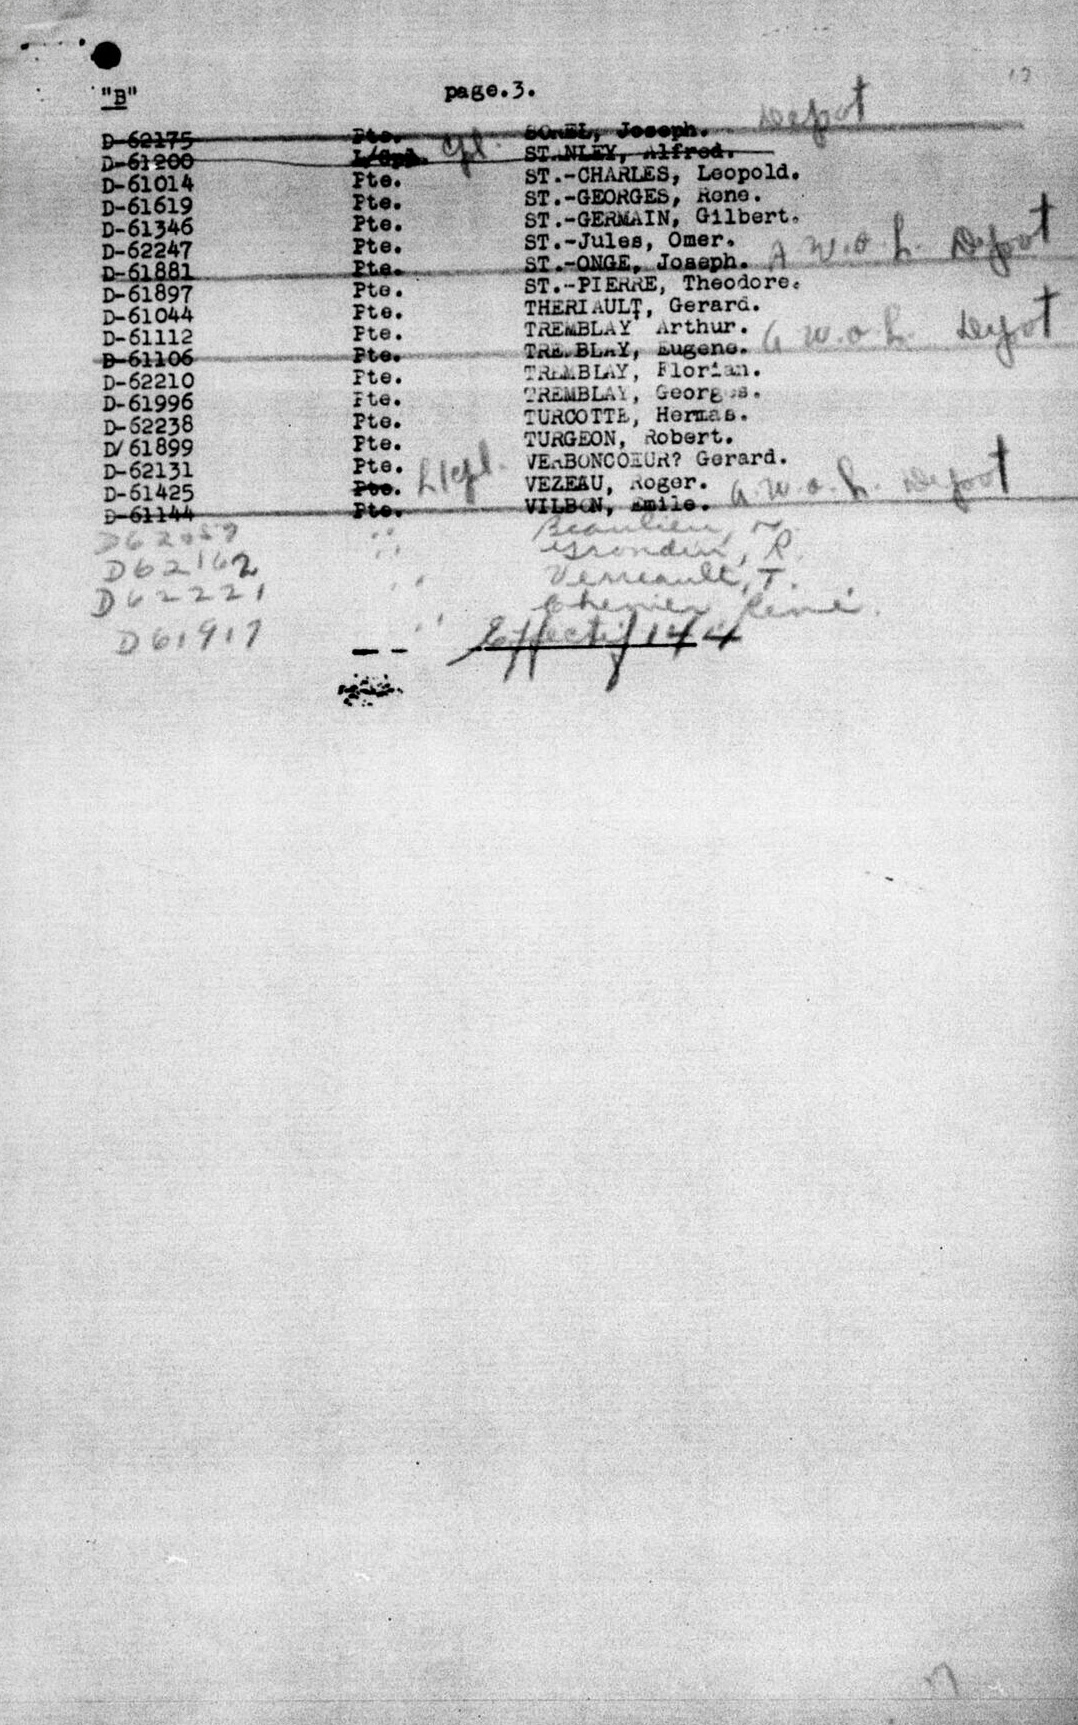 "B" page.3.
D-62175 Pte. SOREL, Joseph. Depot
D-61200 L/Cpl. Cpl. STANLEY, Alfred.
D-61014 Pte. ST.-CHARLES, Leopold.
D-61619 Pte. ST.-GEORGES, Rene.
D-61346 Pte. ST.-GERMAIN, Gilbert.
D-62247 Pte. ST.-Jules, Omer.
D-61881 Pte. ST.-ONGE, Joseph. A.W.O.L. Depot
D-61897 Pte. ST.-PIERRE, Theodore.
D-61044 Pte. THERIAULT, Gerard.
D-61112 Pte. TREMBLAY Arthur.
D-61106 Pte. TREMBLAY, Eugene. a.w.o.L. Depot
D-62210 Pte. TREMBLAY, Florian.
D-61996 Pte. TREMBLAY, Georges.
D-62238 Pte. TURCOTTE, Hermas.
D/61899 Pte. TURGEON, Robert.
D-62131 Pte. VERBONCOEUR? Gerard.
D-61425 Pte. L/Cpl. VEZEAU, Roger.
D-61144 Pte. VILBON, Emile. a.w.o.L. Depot
D62059 " Beaulieu,
D62162 " Grondin, R.
D62221 " Verreault, T.
D61917 " Chenier, René.
-- Effectif 144